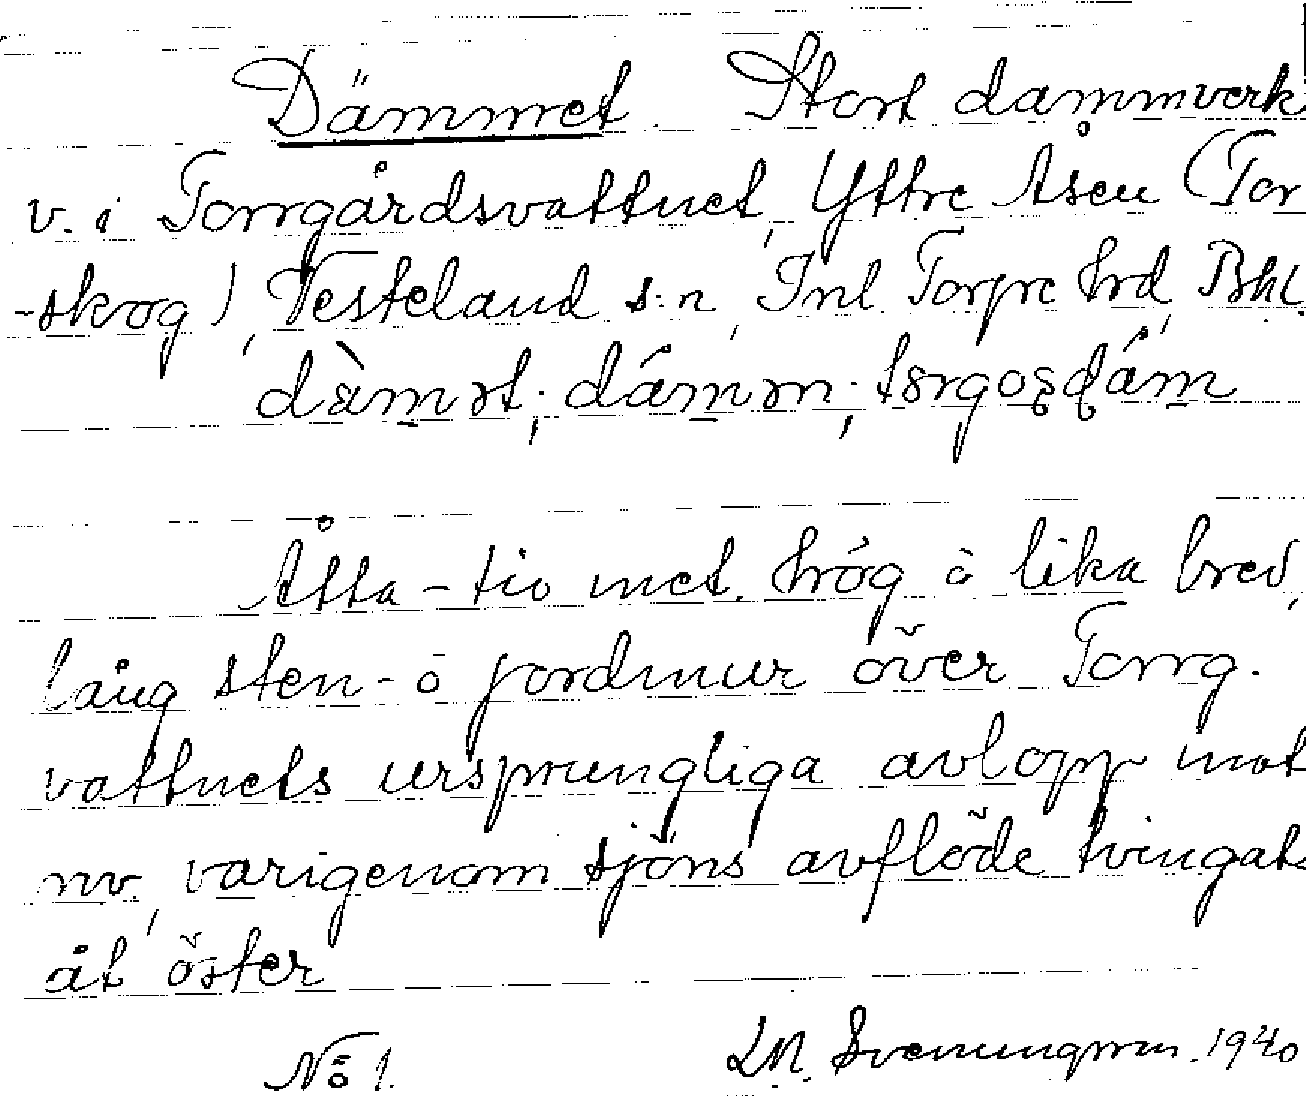 Dämmet. Stort dammverk
v. i Torrgårdsvattnet, Yttre Åsen (Tor
-skog), Vesteland s:n, Inl Torpe hrd, Bhl.
dàmɜt; dám̥m; tɜrgoʂɖám
Åtta-tio met. hög å lika bred,
lång sten- o jordmur över Torrg.
vattnets ursprungliga avlopp mot
nv, varigenom sjöns avflöde tvingats
åt öster
No 1. LM. Svenungsson. 1940